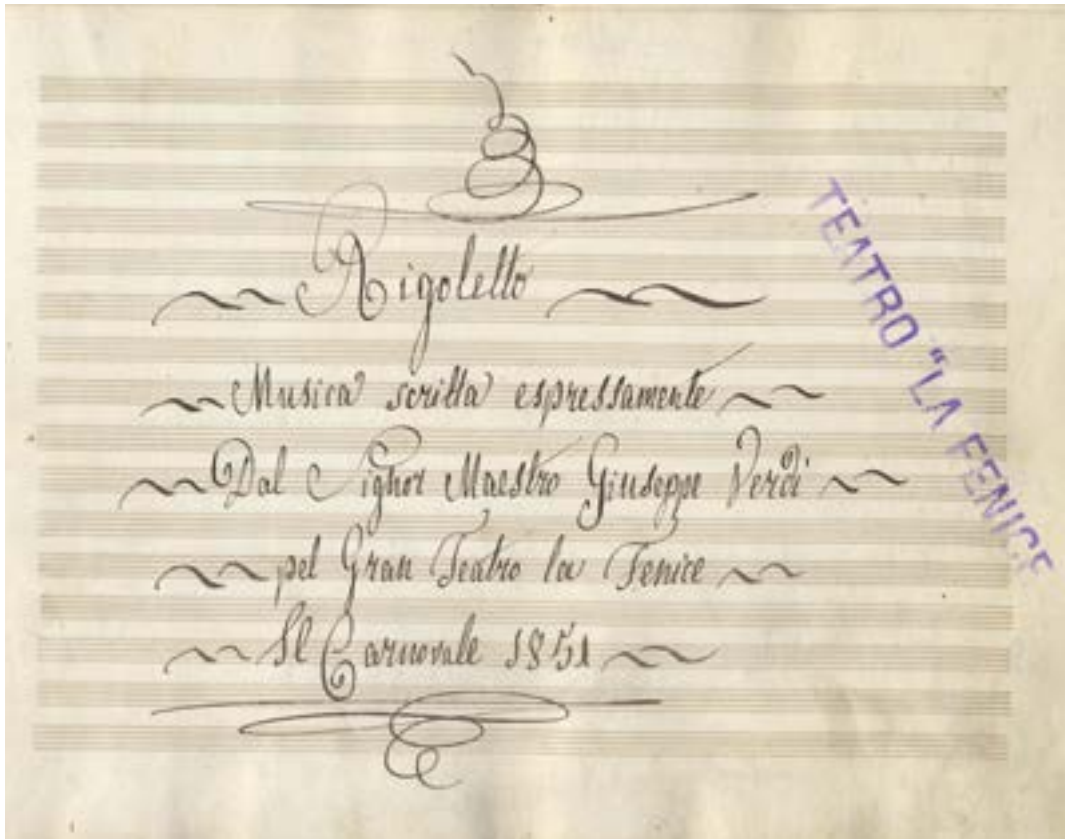 Rigoletto
Musica scritta espressamente
Dal Signor Maestro Giuseppe Verdi
pel Gran Teatro la Fenice
Il Carnovale 1851
TEATRO "LA FENICE